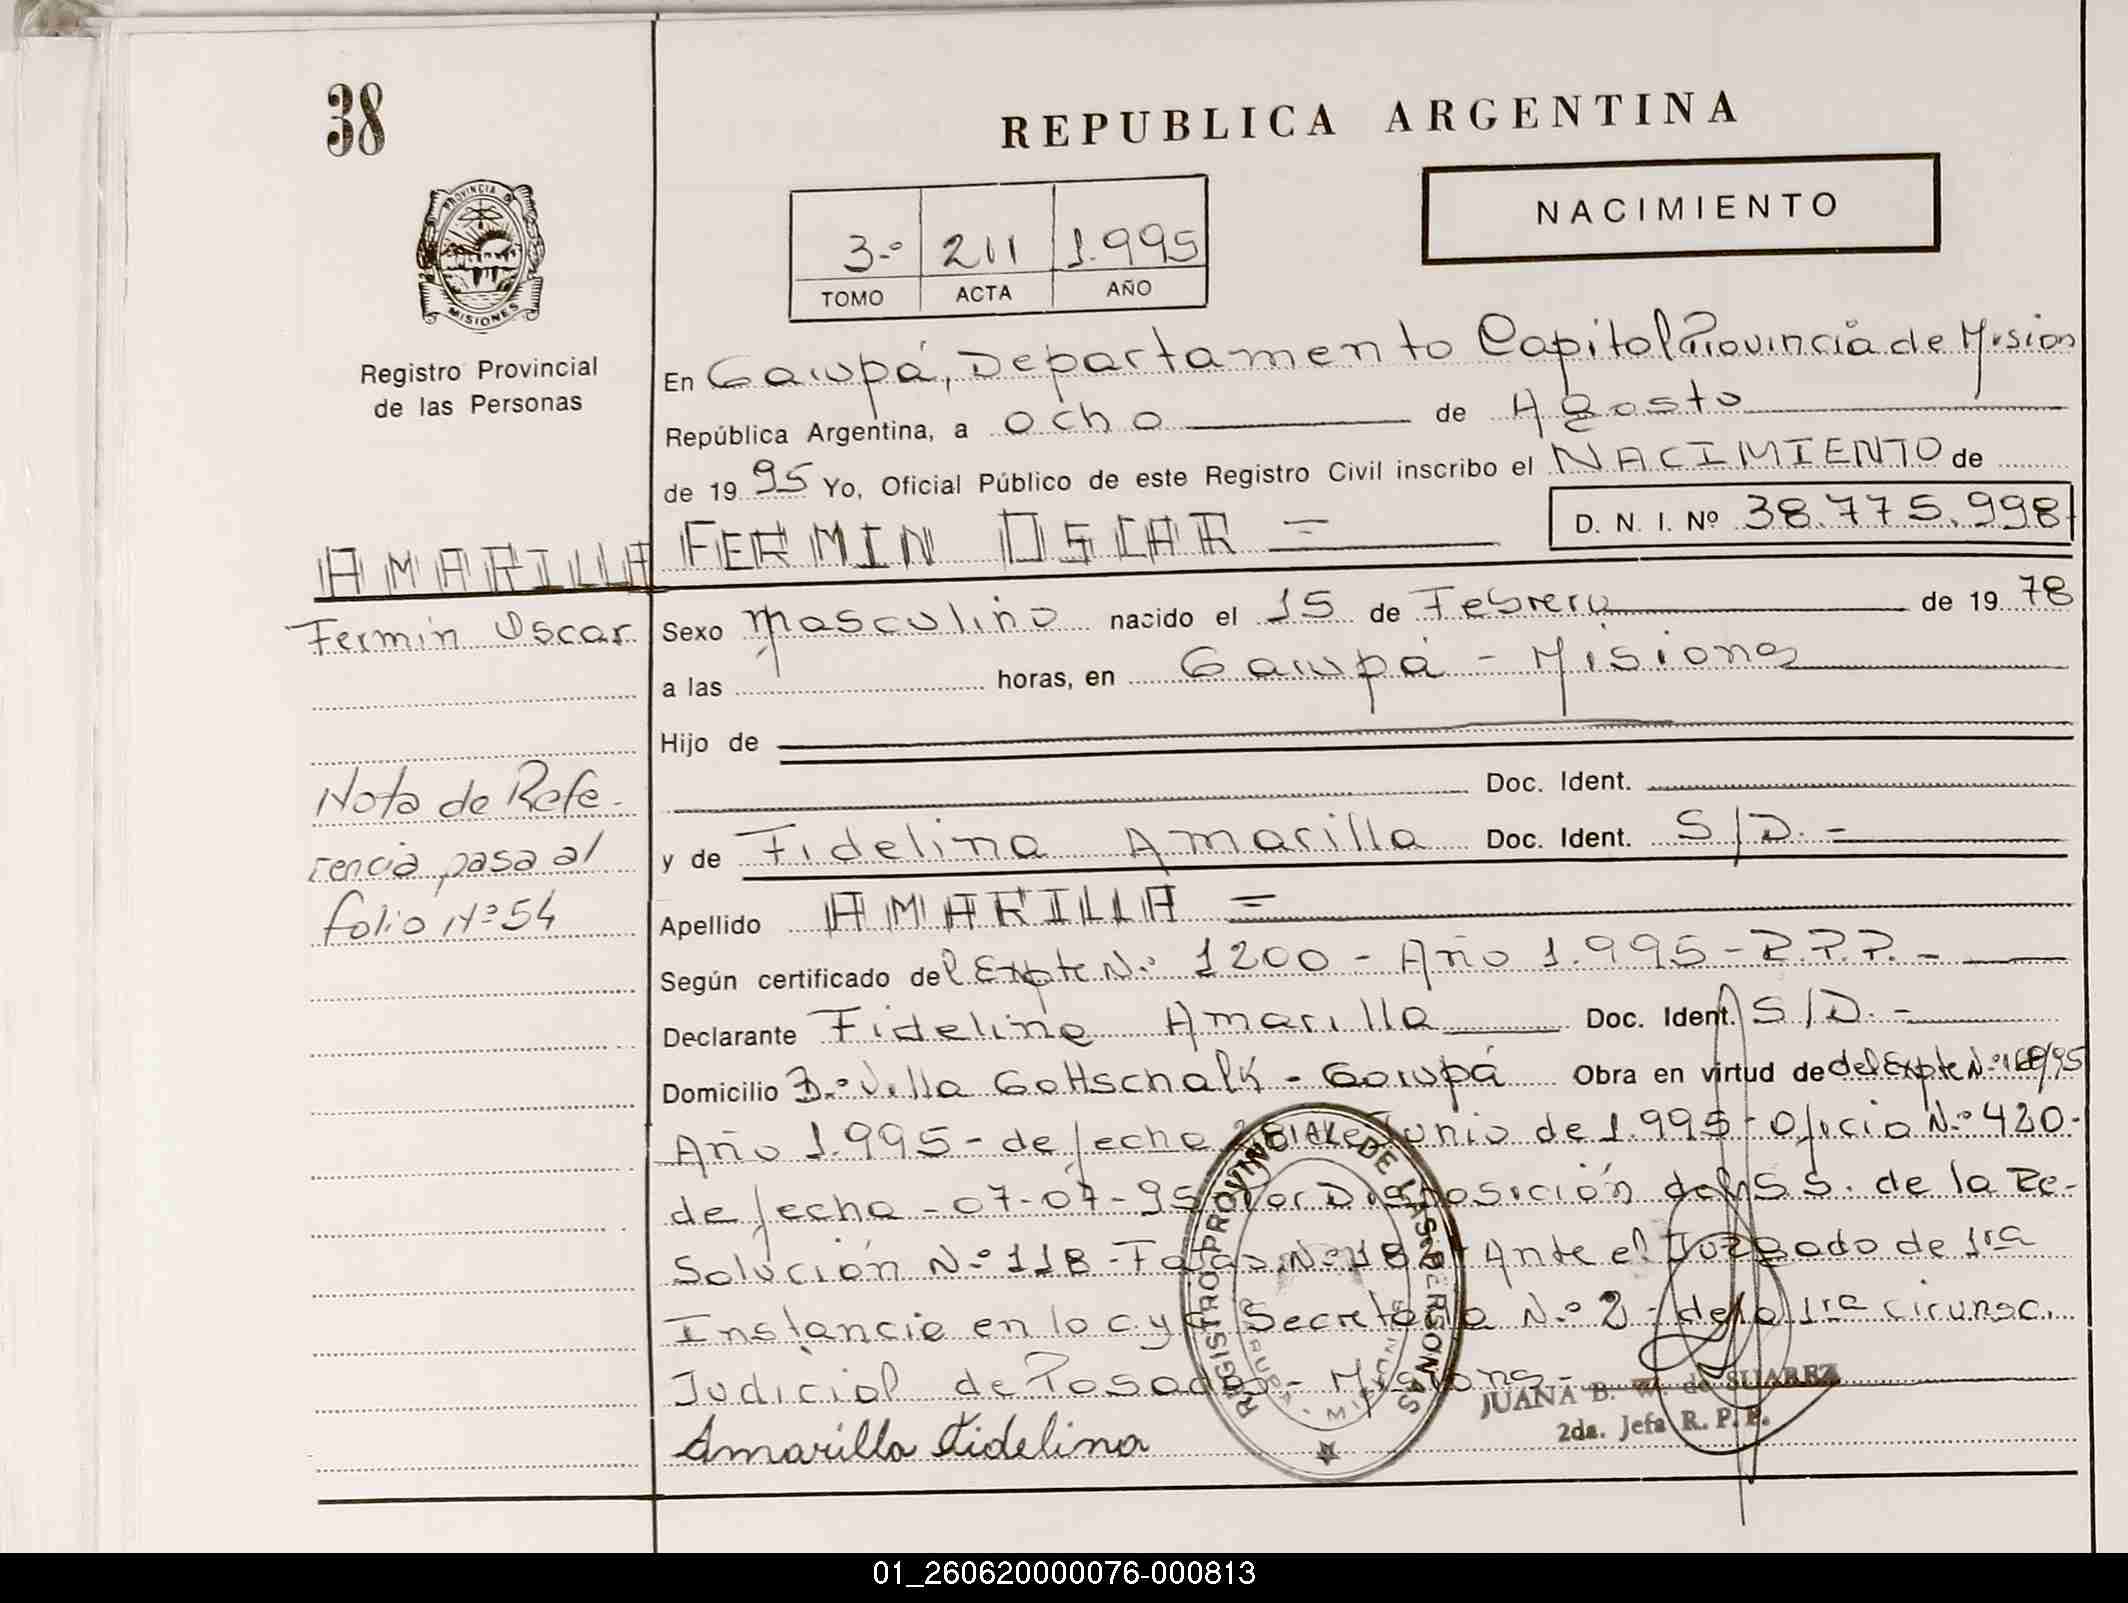 38
REPUBLICA ARGENTINA
NACIMIENTO
3.º 211 1.995
TOMO ACTA AÑO
PROVINCIA D
MISIONES
Registro Provincial
de las Personas
En Garupá, Departamento Capital Provincia de Misiones
República Argentina, a ocho de Agosto
de 1995 Yo, Oficial Público de este Registro Civil inscribo el NACIMIENTO de
D. N. I. Nº 38.775.998
AMARILLA FERMIN OSCAR =
Fermin Oscar
Sexo masculino nacido el 15 de Febrero de 1978
a las horas, en Garupá - Misiones
Hijo de
Doc. Ident.
y de Fidelina Amarilla Doc. Ident. S/D. -
Nota de Refe-
rencia pasa al
folio Nº 54
Apellido AMARILLA =
Según certificado del Expte N.º 1200 - Año 1.995 - R.P.P. -
Declarante Fidelina Amarilla Doc. Ident. S/D. -
Domicilio B.º Villa Gottschalk - Garupá Obra en virtud de del Expte N.º
Año 1.995 - de fecha de Junio de 1.995 - Oficio N.º 420-
de fecha - 07-07-95 Por Disposición del S.S. de la Re-
solución N.º 118 - Fojas N.º 18 Ante el Juzgado de 1ra
Instancia en lo C. y Secretaria N.º 2 - de la 1ra circunsc.
Judicial de Posadas - Misiones -
Amarilla Fidelina
REGISTRO PROVINCIAL DE LAS PERSONAS
JUANA B. W. de SUAREZ
2da. Jefa R. P. P.
01_260620000076-000813